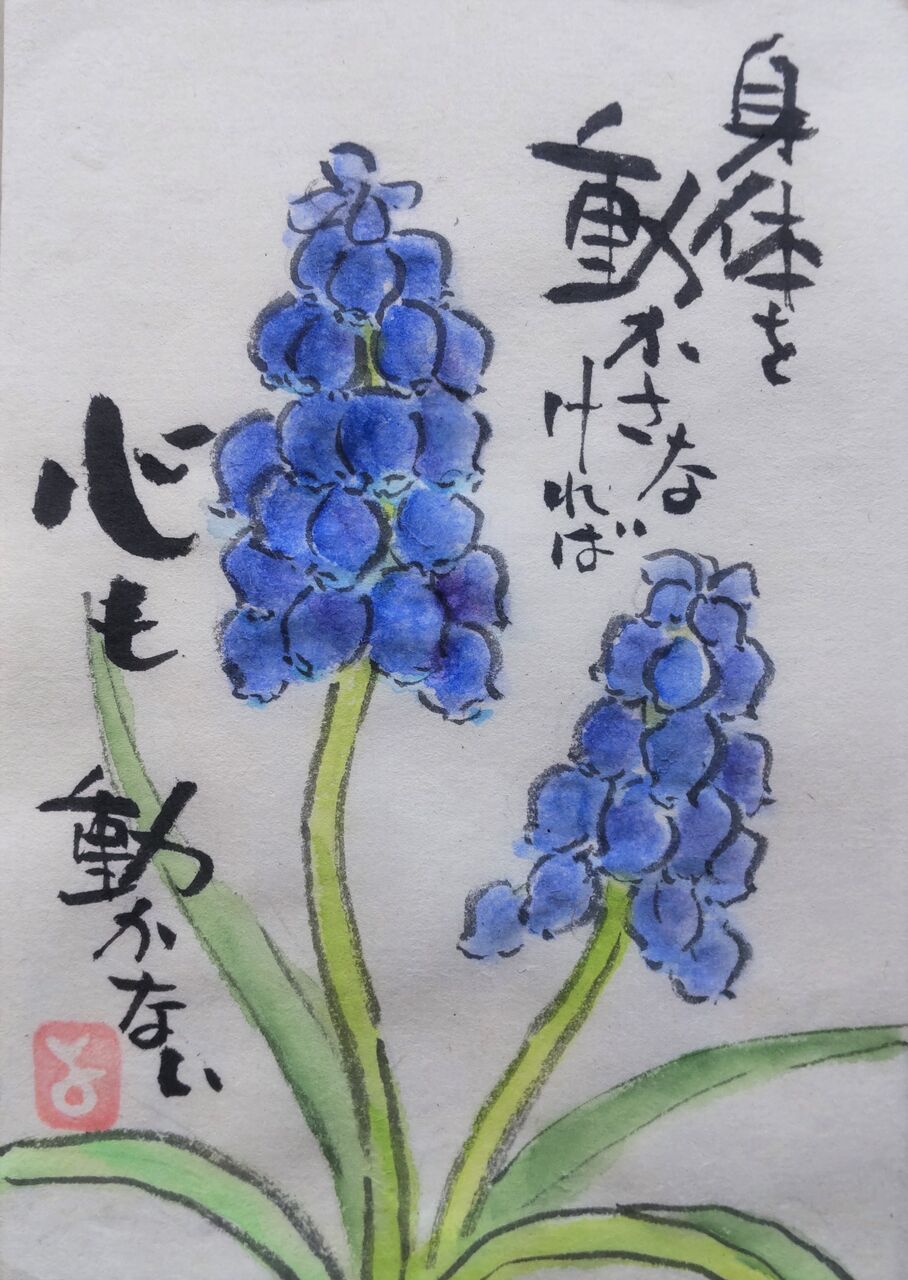 身体を
動かさな
ければ
心も
動かない